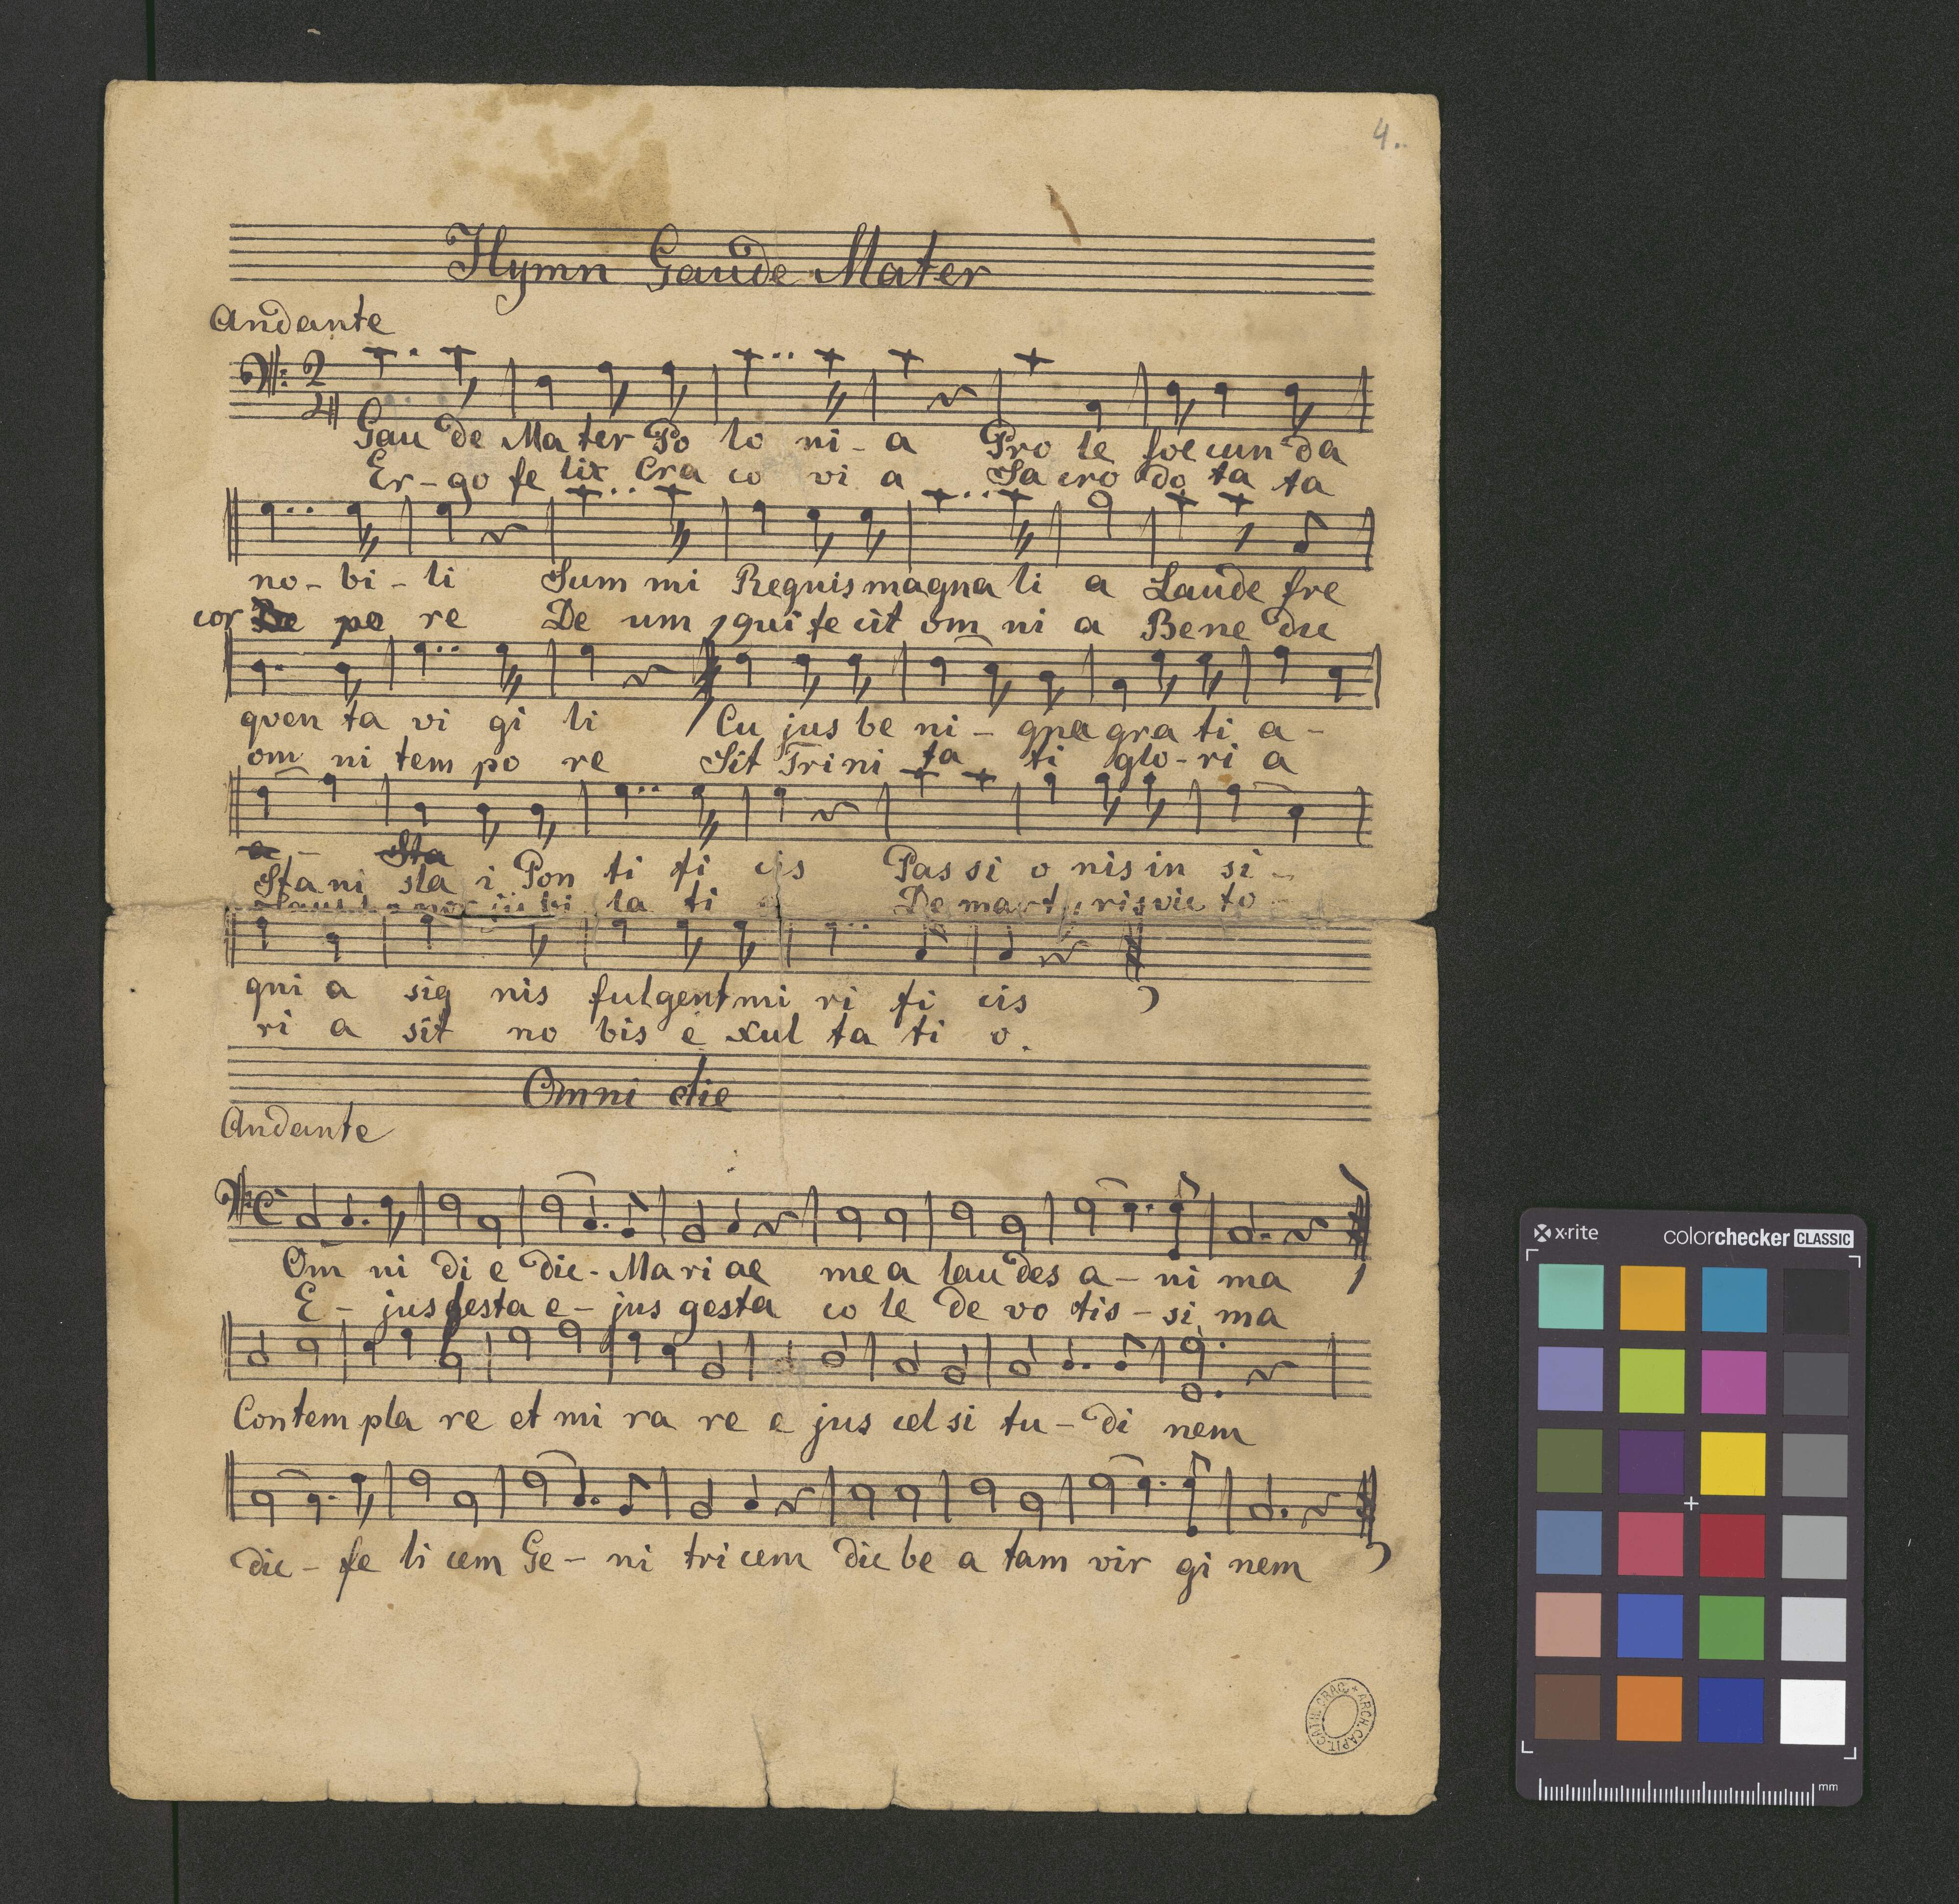 4.
Hymn Gaude Mater
Andante
2
4
Gau de Ma ter Po lo ni - a Pro le foe cun da
Er - go fe lix Cra co vi a Sa cro do ta ta
no - bi - li Sum mi Reguis magna li a Laude fre
cor po re De um, qui fe cit om ni a Bene dic
quen ta vi gi li Cu jus be ni - gna gra ti a -
om ni tem po re Sit Trini ta ti glo - ri a
a - Sta
Sta ni sla i Pon ti fi cis Pas si o nis in si -
la ti De mart ris vic to -
gni a sig nis fulgent mi ri fi cis
ri a sit no bis e xul ta ti o.
Omni die
Andante
C
Om ni di e dic - Mari ae me a lau des a - ni ma
E - jus festa e - jus gesta co le de vo tis - si ma
Contem pla re et mi ra re e jus cel si tu - di nem
dic - fe li cem Ge - ni tri cem dic be a tam vir gi nem
ARCH. CAPIT. CATH. CRAC. +
x·rite colorchecker CLASSIC
mm